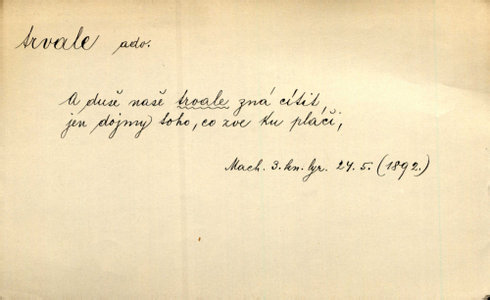 trvale adv.
A duše naše trvale zná cítit
jen dojmy toho, co zve ku pláči,
Mach. 3. kn. lyr. 24. 5. (1892.)